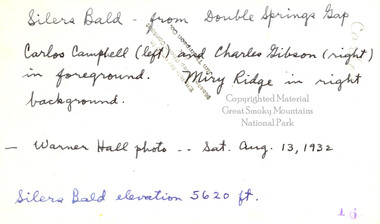 Silers Bald - from Double Springs Gap
Carlos Campbell (left) and Charles Gibson (right)
in foreground. Miry Ridge in right
background.
Copyrighted Material
Great Smoky Mountains
National Park
- Warner Hall photo -- Sat. Aug. 13, 1932
Silers Bald elevation 5620 ft.